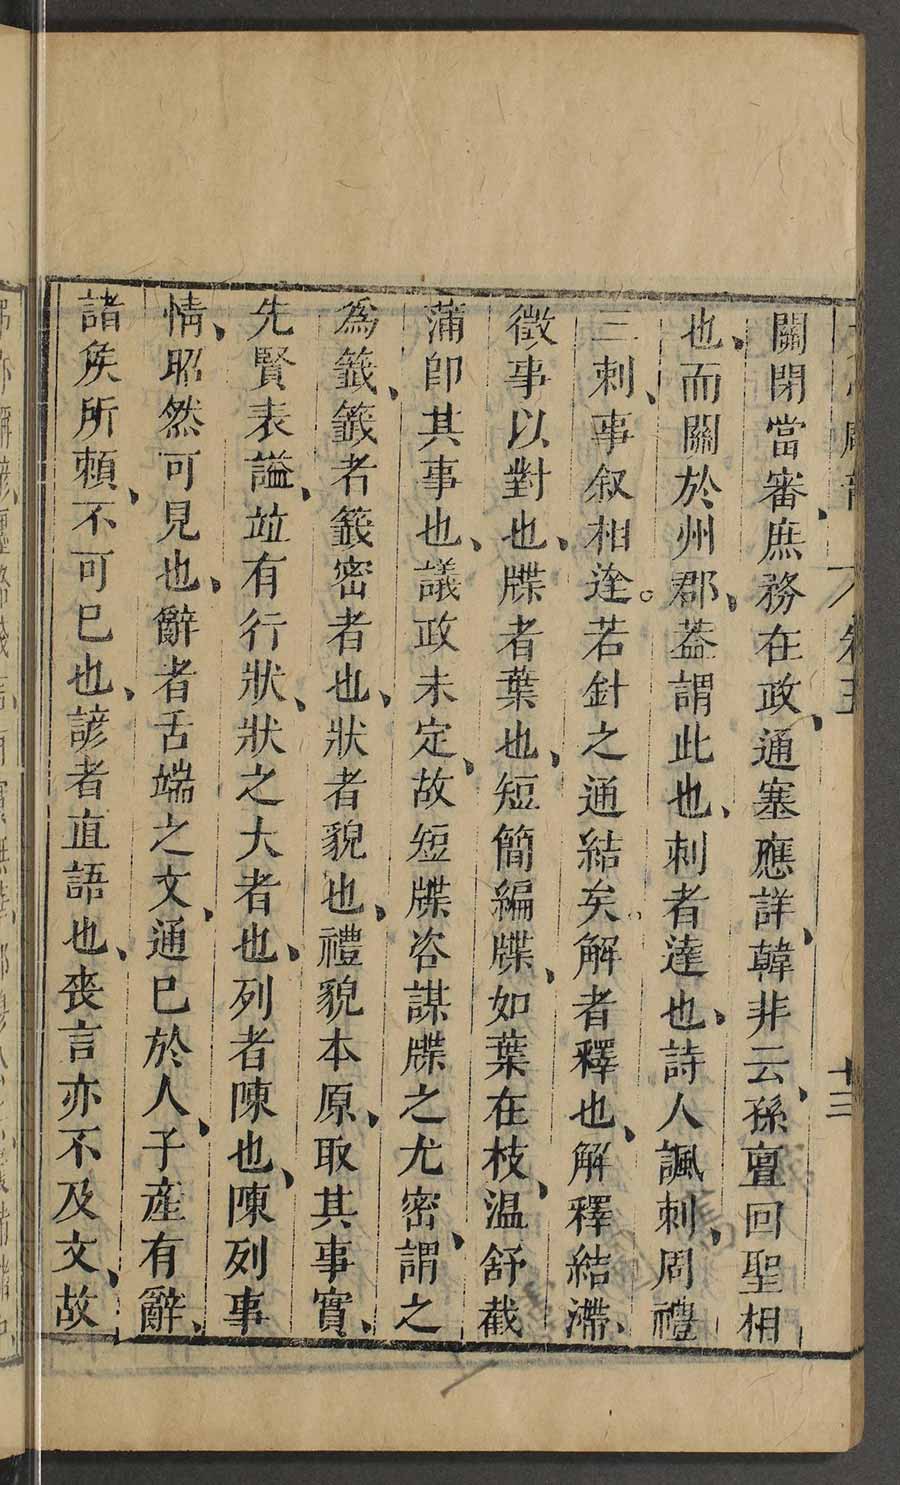 卷五
十三
關閉當審、庶務在政、通塞應詳、韓非云、孫亶回聖相
也、而關於州郡、蓋謂此也、刺者達也、詩人諷刺、周禮
三刺、事叙相達。若針之通結矣、解者釋也、解釋結滯、
徵事以對也、牒者葉也、短簡編牒、如葉在枝、温舒截
蒲卽其事也、議政未定、故短牒咨謀牒之尤密、謂之
為籤、籤者籤密者也、狀者貌也、禮貌本原、取其事實、
先賢表謚、竝有行狀、狀之大者也、列者陳也、陳列事
情、昭然可見也、辭者舌端之文、通巳於人、子產有辭、
諸矦所頼、不可巳也、諺者直語也、喪言亦不及文、故